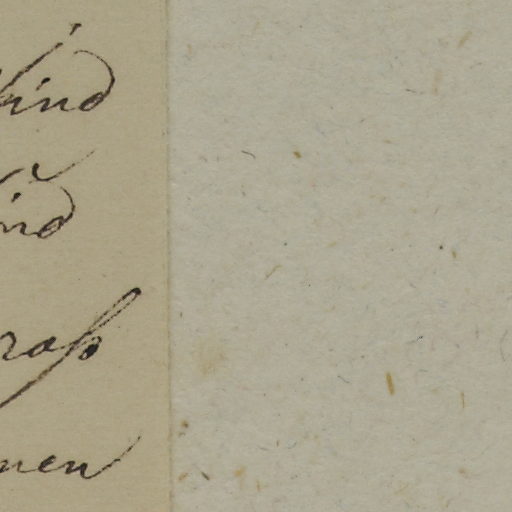 sind
ind
raß
men